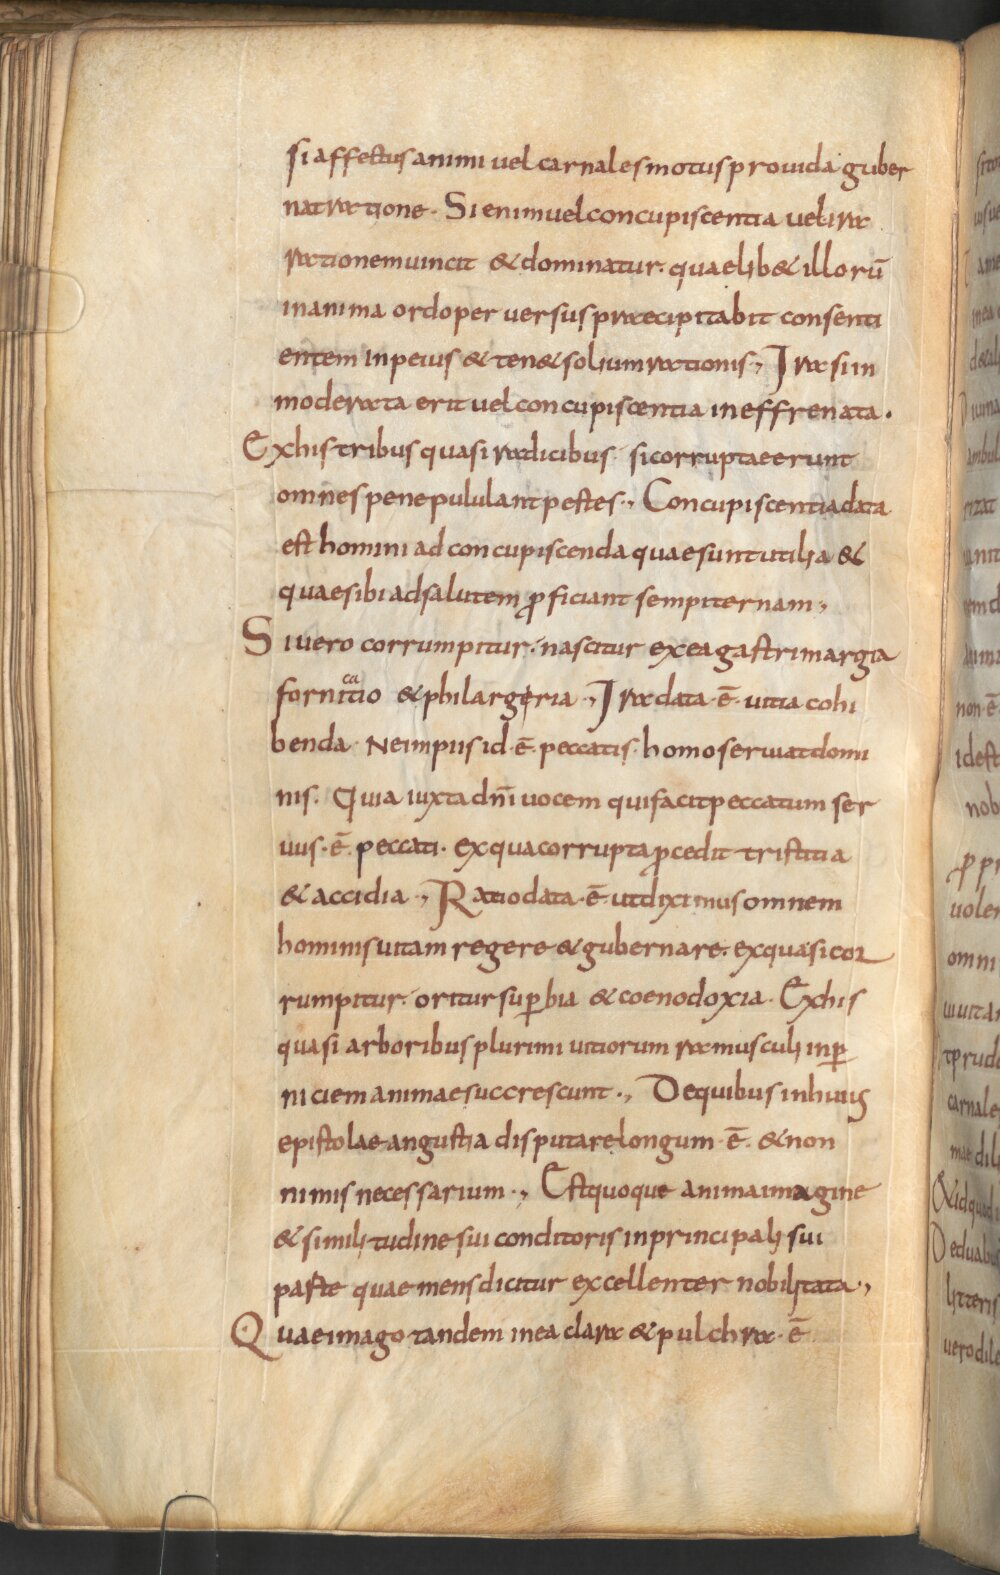 si affectus animi vel carnales motus provida guber
nat ratione. Si enim vel concupiscentia vel ira
rationem vincit & dominatur. quaelib& illorū
in anima ordo perversus praecipitabit consenti
entem in peius & ten& solium rationis., Ira si in
moderata erit vel concupiscentia in effrenata.
Ex his tribus quasi radicibus si corruptae erunt
omnes pene pululant pestes., Concupiscentia data
est homini ad concupiscenda quae sunt utilia &
quae sibi ad salutem ꝓficiant sempiternam.,
Si vero corrumpitur. nascitur ex ea gastrimargia
fornicatio & philargeria ., Ira data ·ē· vitia cohi
benda· Ne impiis id ·ē· peccatis· homo serviat domi
nis. Quia iuxta dn̄i vocem qui facit peccatum ser
vus ·ē· peccati. ex qua corrupta ꝓcedit tristitia
& accidia ., Ratio data ·ē· ut diximus omnem
hominis vitam regere & gubernare. ex qua si cor
rumpitur. oritur suꝑbia & coenodoxia· Ex his
quasi arboribus plurimi vitiorum ramusculi in ꝑ
niciem animae succrescunt ., De quibus in huius
epistolae angustia disputare longum ·ē· & non
nimis necessarium ., Est quoque anima imagine
& similitudine sui conditoris in principali sui
parte quae mens dicitur excellenter nobilitata.,
Quae imago tandem in ea clara & pulchra ·ē·